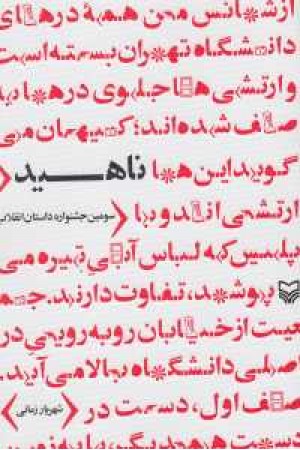 ازشانس من همهٔ درهای
دانشگاه تهران بسته است
و ارتشی ها جلوی درها به
صف شده اند؛ کیهان می
گوید این ها ناهید
ارتشی اند و با سومین جشنواره داستان انقلاب
پلیس که لباس آبی تیره می
پوشد، تفاوت دارند. جمـ
عیت از خیابان روبه رویی در
صلی دانشگاه بالا می آید.
صف اول، دست در شهریار زمانی
دست همدیگر،